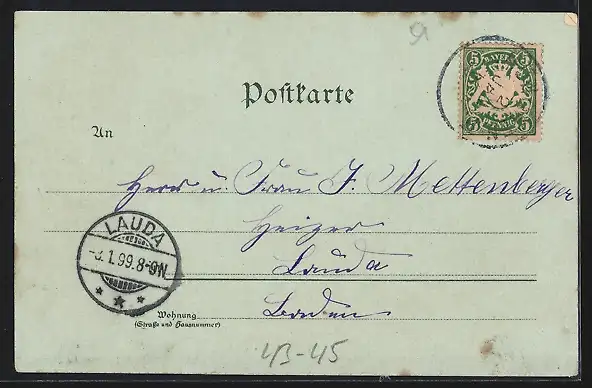 5 BAYERN 5
5 PFENNIG 5
Postkarte
An
Herr u. Frau J. Mettenberger
Heizer
Lauda
Baden
LAUDA
1.99.8-9N
Wohnung
(Straße und Hausnummer)
43-45